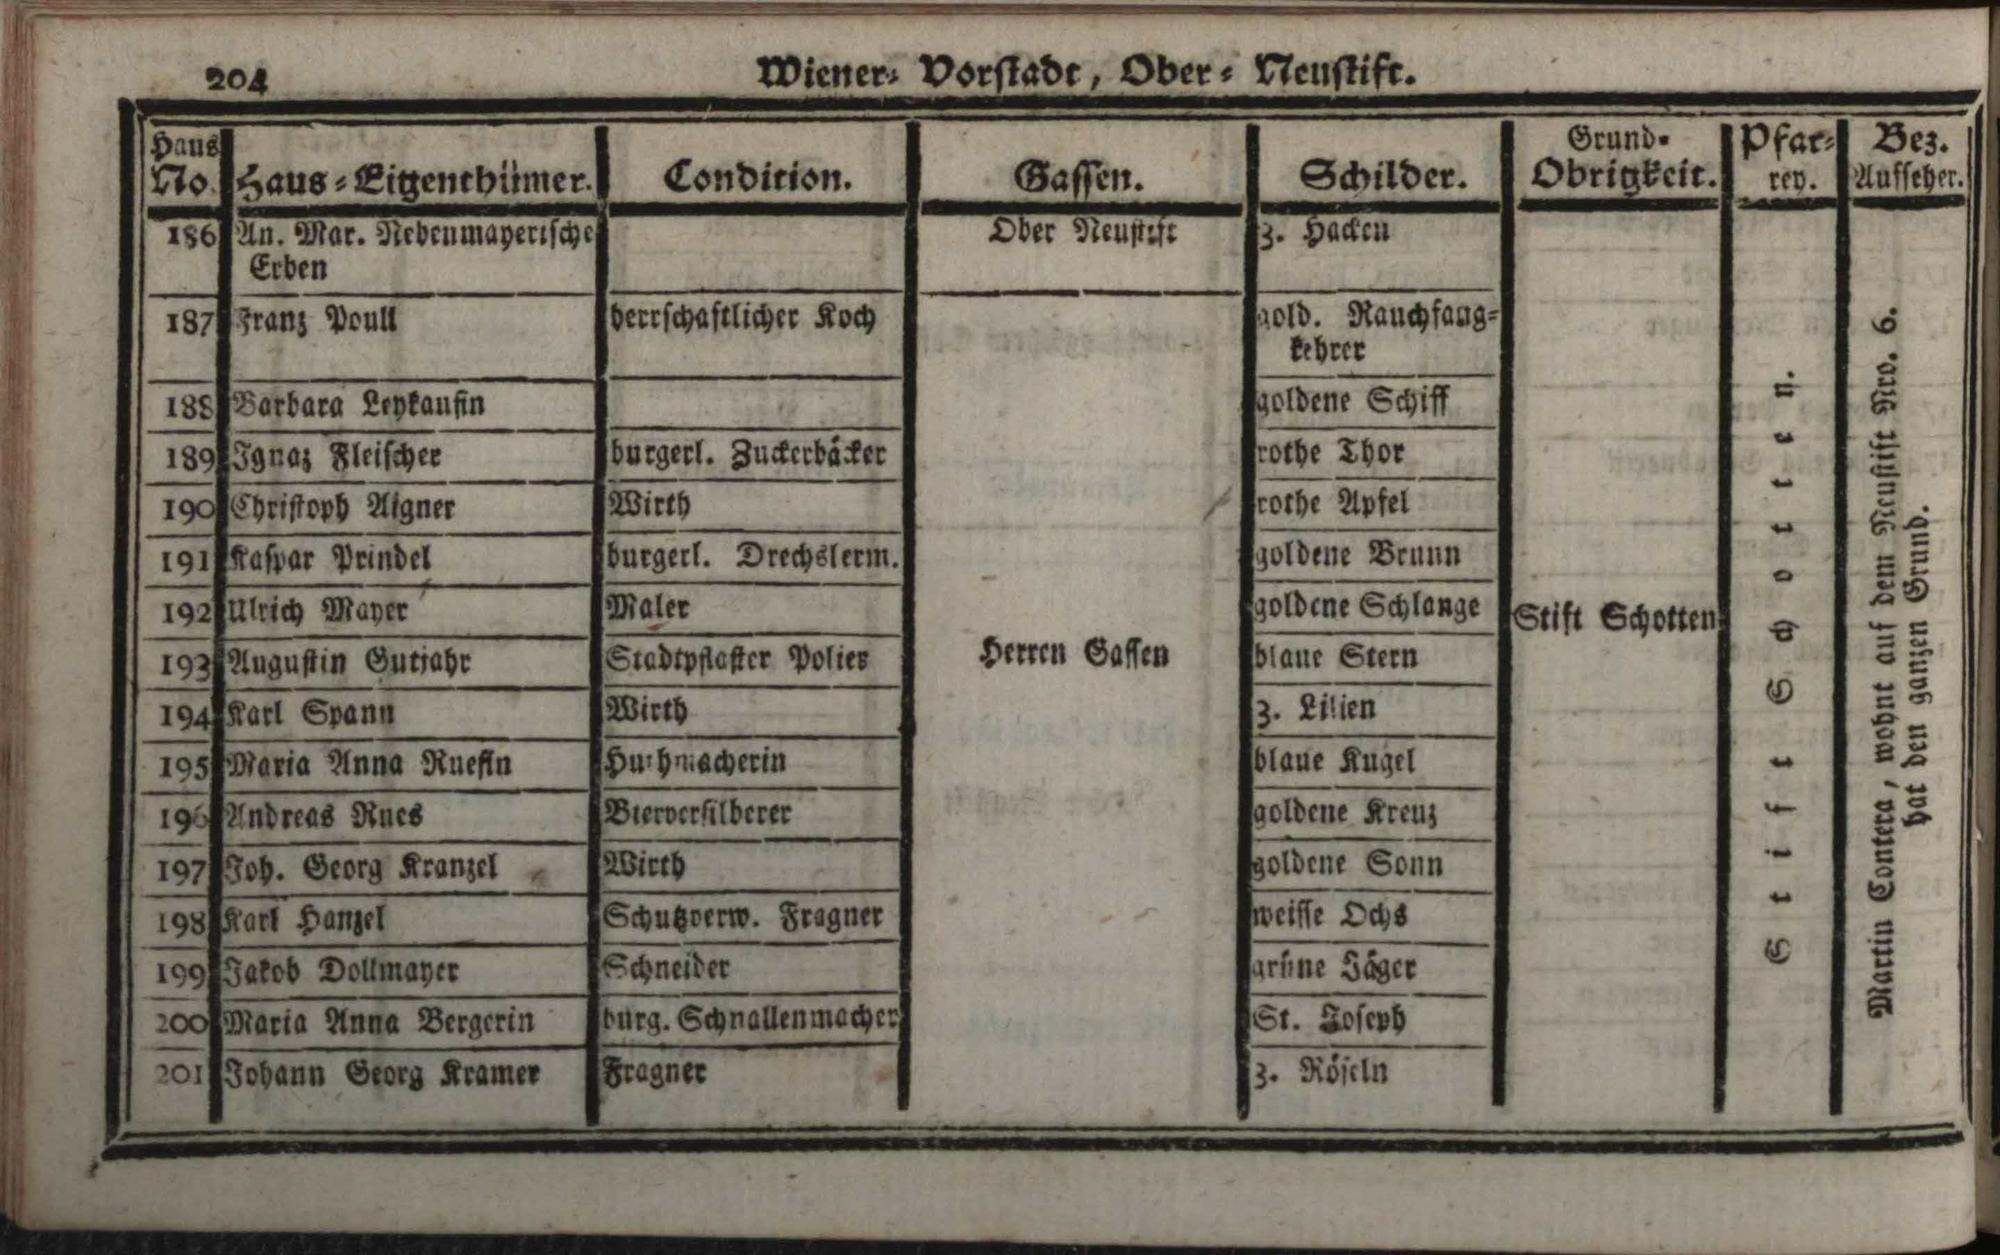 204
Wiener- Vorstadt, Ober- Neustift.
Haus No. Haus-Eigenthümer. Condition. Gassen. Schilder. Grund-Obrigkeit. Pfar-rey. Bez. Aufseher.
186 An. Mar. Nebenmayerische Ober Neustift z. Hacken
Erben
187 Franz Poull herrschaftlicher Koch gold. Rauchfang-
kehrer
188 Barbara Leykaufin goldene Schiff
189 Ignaz Fleischer burgerl. Zuckerbäcker rothe Thor
190 Christoph Aigner Wirth rothe Apfel
191 Kaspar Prindel burgerl. Drechslerm. goldene Brunn
192 Ulrich Mayer Maler goldene Schlange
Stift Schotten
193 Augustin Gutjahr Stadtpflaster Polier Herren Gassen blaue Stern
194 Karl Spann Wirth z. Lilien
195 Maria Anna Ruefin Huthmacherin blaue Kugel
196 Andreas Rues Bierversilberer goldene Kreuz
197 Joh. Georg Kranzel Wirth goldene Sonn
198 Karl Hanzel Schutzverw. Fragner weisse Ochs
199 Jakob Dollmayer Schneider grüne Jäger
200 Maria Anna Bergerin burg. Schnallenmacher St. Joseph
201 Johann Georg Kramer Fragner z. Röseln
Stift Schotten.
Martin Contera, wohnt auf dem Neustift Nro. 6.
hat den ganzen Grund.